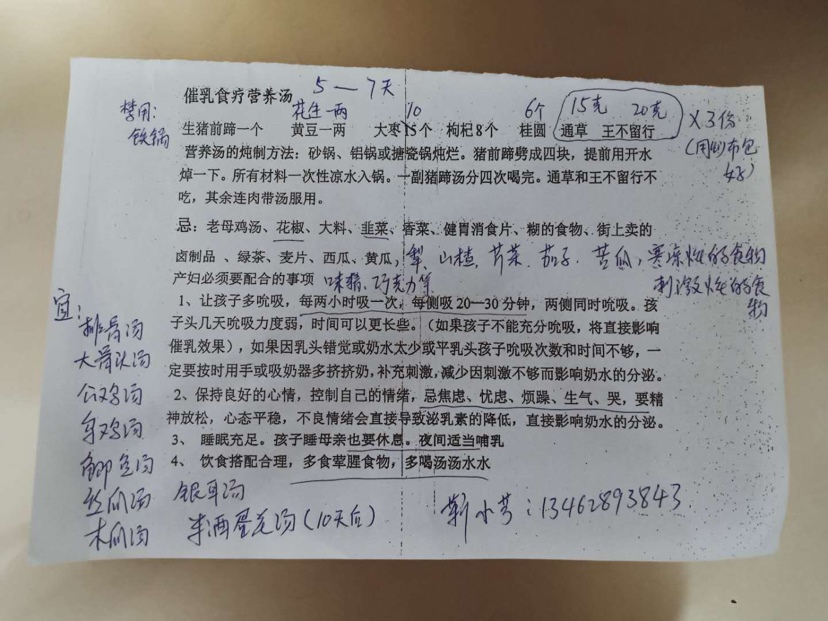 5—7天
催乳食疗营养汤
禁用：
铁锅
花生一两 10 6个 15克 20克
生猪前蹄一个 黄豆一两 大枣15个 枸杞8个 桂圆 通草 王不留行
×3份
(用纱布包好)
营养汤的炖制方法：砂锅、铝锅或搪瓷锅炖烂。猪前蹄劈成四块，提前用开水
焯一下。所有材料一次性凉水入锅。一副猪蹄汤分四次喝完。通草和王不留行不
吃，其余连肉带汤服用。
忌：老母鸡汤、花椒、大料、韭菜、香菜、健胃消食片、糊的食物、街上卖的
卤制品 、绿茶、麦片、西瓜、黄瓜，梨、山楂、芹菜、茄子、苦瓜，寒凉性的食物
刺激性的食物
味精、巧克力等
产妇必须要配合的事项
1、让孩子多吮吸，每两小时吸一次，每侧吸20—30分钟，两侧同时吮吸。孩
子头几天吮吸力度弱，时间可以更长些。（如果孩子不能充分吮吸，将直接影响
催乳效果），如果因乳头错觉或奶水太少或平乳头孩子吮吸次数和时间不够，一
定要按时用手或吸奶器多挤挤奶，补充刺激，减少因刺激不够而影响奶水的分泌。
2、保持良好的心情，控制自己的情绪，忌焦虑、忧虑、烦躁、生气、哭，要精
神放松，心态平稳，不良情绪会直接导致泌乳素的降低，直接影响奶水的分泌。
3、 睡眠充足。孩子睡母亲也要休息。夜间适当哺乳
4、 饮食搭配合理，多食荤腥食物，多喝汤汤水水
宜：
排骨汤
大骨头汤
公鸡汤
乌鸡汤
鲫鱼汤
丝瓜汤
木瓜汤
银耳汤
蛋花汤(10天后)
靳小芳：13462893843